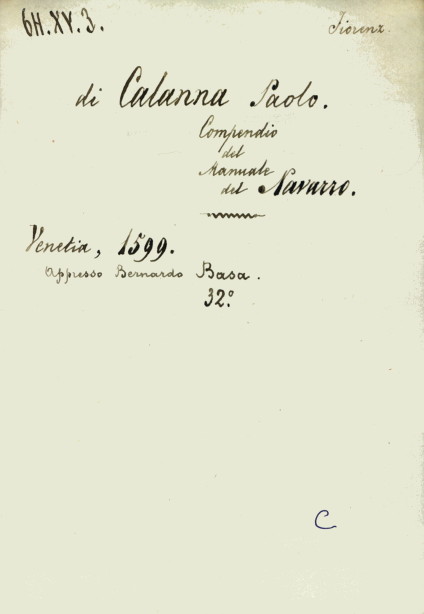 6H.XV.3.
Fiorenz.
di Calanna Paolo.
Compendio
del
Manuale
del Navarro.
Venetia, 1599.
Appresso Bernardo Basa.
32.º
C